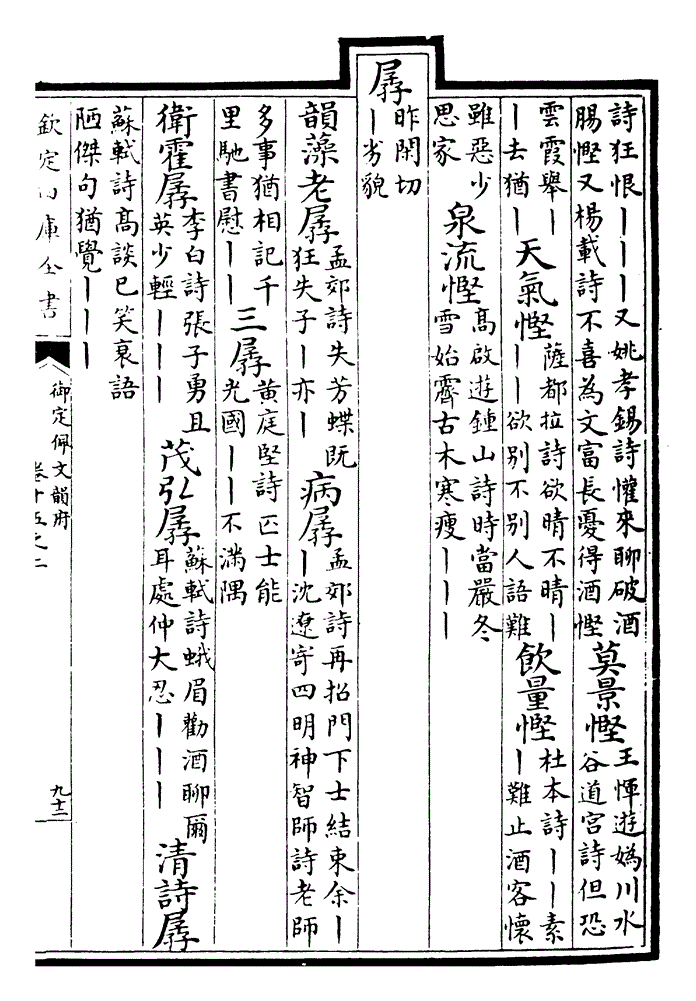 詩狂恨｜｜｜又姚孝錫詩懽來聊破酒
腸慳又楊載詩不喜為文富長憂得酒慳
莫景慳
王惲遊媯川水
谷道宮詩但恐
雲霞舉｜
｜去猶｜
天氣慳
薩都拉詩欲晴不晴｜
｜｜欲别不别人語難
飲量慳
杜本詩｜｜素
｜難止酒客懷
雖惡少
思家
泉流慳
高啟遊鍾山詩時當嚴冬
雪始霽古木寒瘦｜｜｜
孱
昨閑切
｜劣貌
韻藻老孱
孟郊詩失芳蝶既
狂失子｜亦｜
病孱
孟郊詩再招門下士結束余｜
｜沈遼寄四明神智師詩老師
多事猶相記千
里馳書慰｜｜
三孱
黄庭堅詩匹士能
光國｜｜不滿隅
衛霍孱
李白詩張子勇且
英少輕｜｜｜
茂弘孱
蘇軾詩蛾眉勸酒聊爾
耳處仲大忍｜｜｜
清詩孱
蘇軾詩髙談已笑衰語
陋傑句猶覺｜｜｜
欽定四庫全書
御定佩文韻府
卷十五之二
九十二